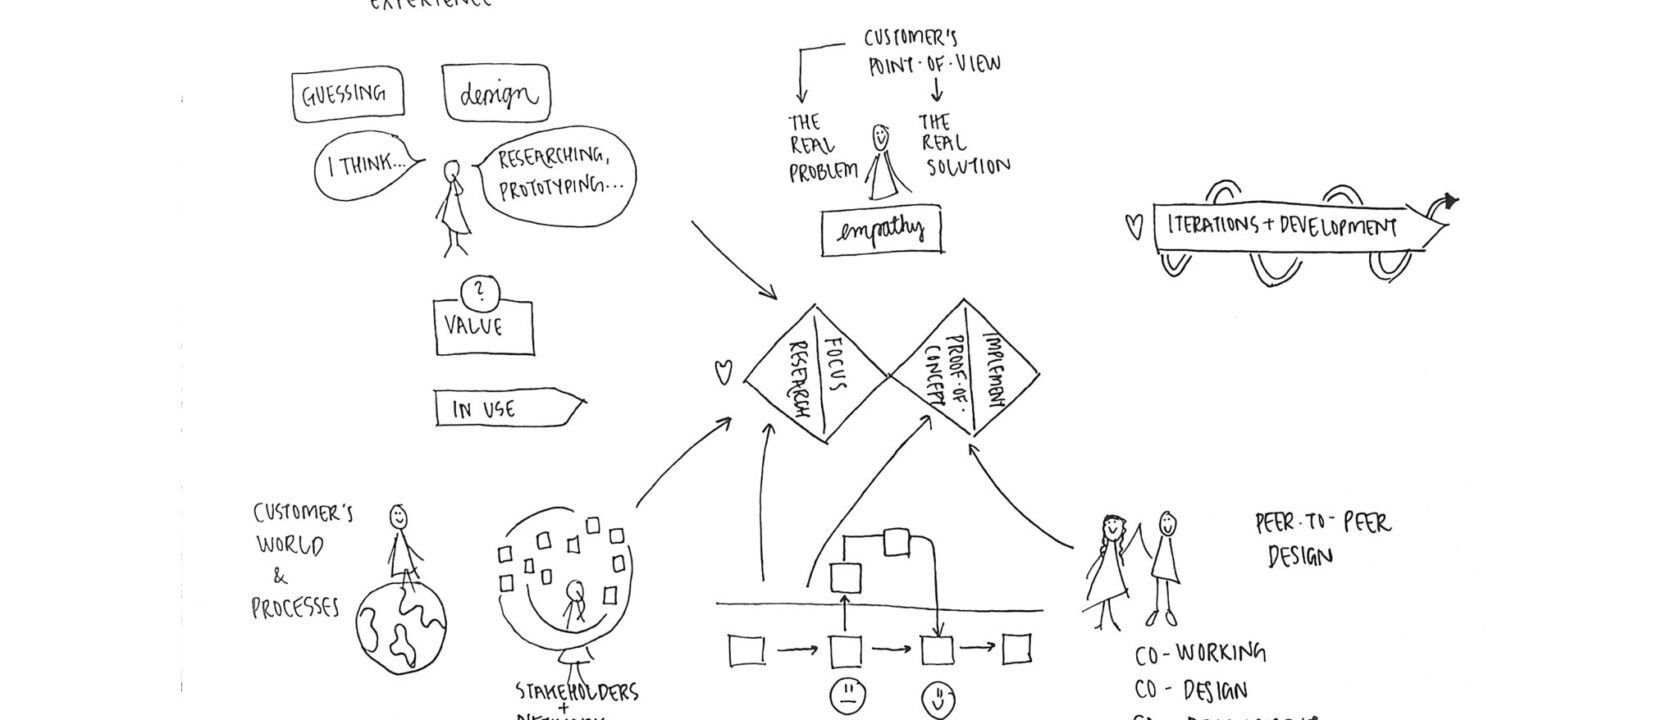 EXPERIENCE
GUESSING
design
I THINK...
RESEARCHING,
PROTOTYPING...
?
VALUE
IN USE
CUSTOMER'S
POINT-OF-VIEW
THE
REAL
PROBLEM
THE
REAL
SOLUTION
empathy
ITERATIONS + DEVELOPMENT
RESEARCH
FOCUS
PROOF-OF-
CONCEPT
IMPLEMENT
CUSTOMER'S
WORLD
&
PROCESSES
STAKEHOLDERS
+
NETWORK
PEER-TO-PEER
DESIGN
CO-WORKING
CO-DESIGN